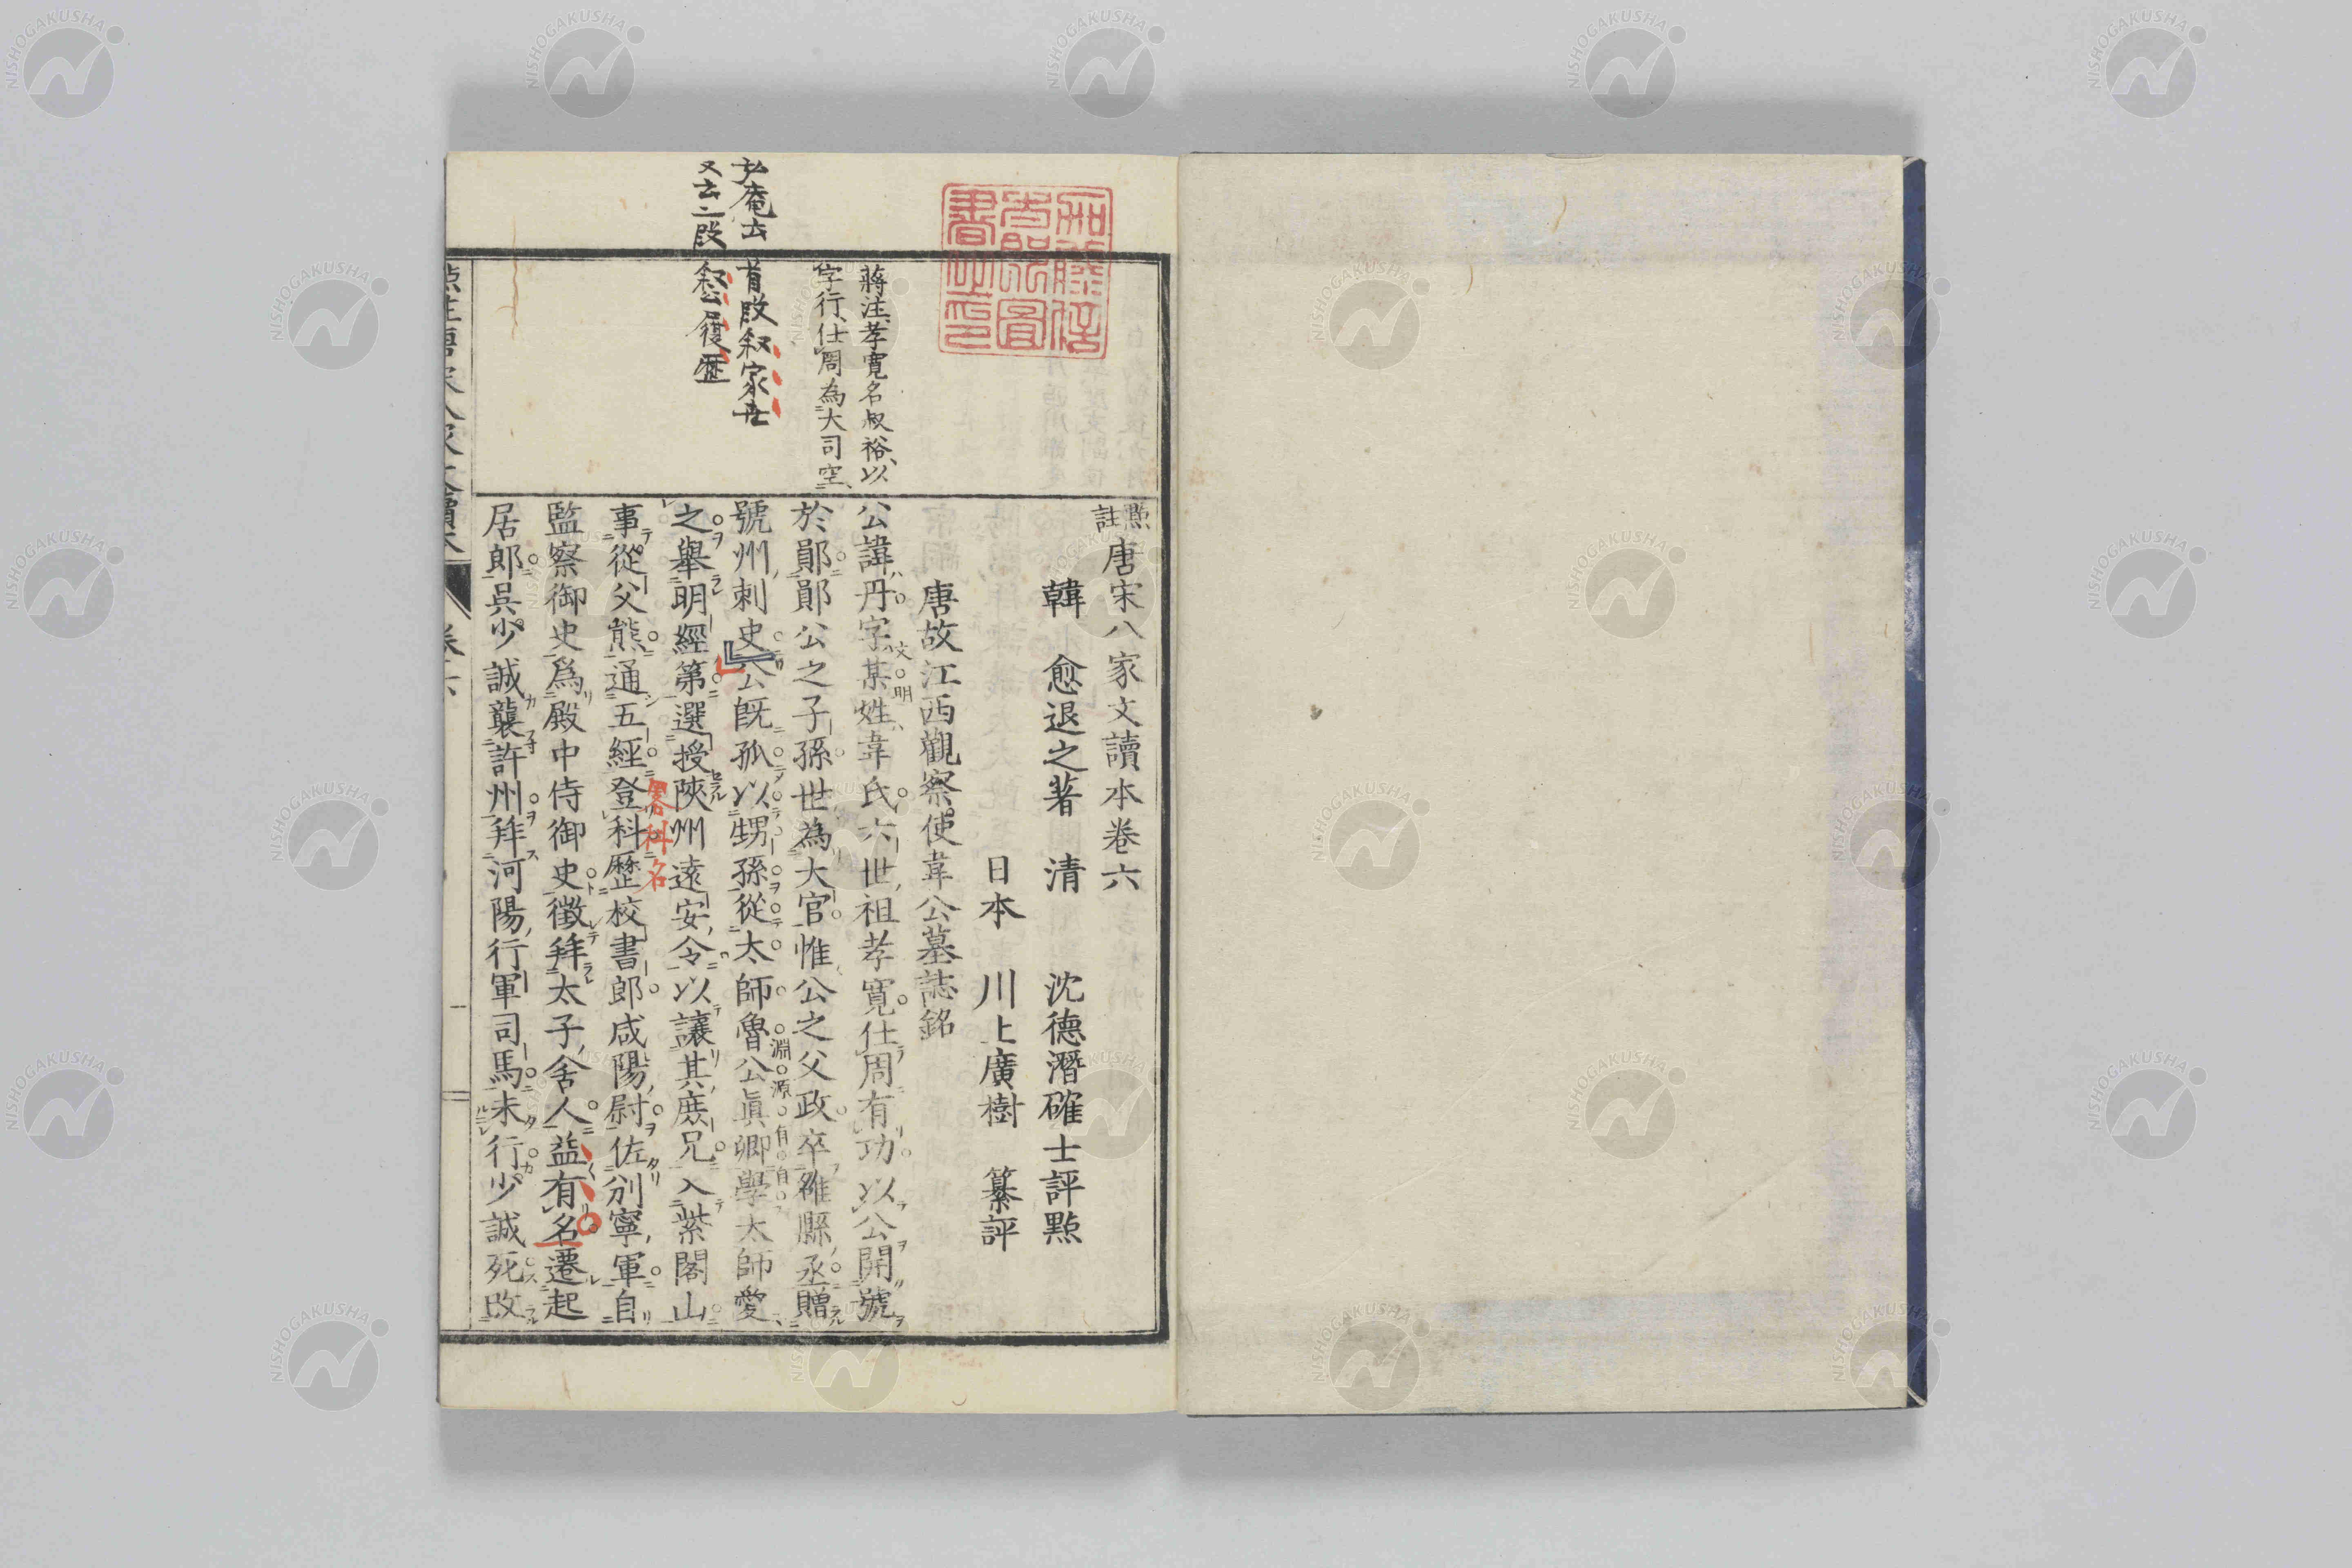 點註唐宋八家文讀本卷六
韓 愈退之著 清 沈德潛確士評點
日本 川上廣樹 纂評
唐故江西觀察使韋公墓誌銘
公諱丹字某姓韋氏六世祖孝寬仕周有功以公開號
於鄖鄖公之子孫世為大官惟公之父政卒雒縣丞贈
號州刺史公既孤以甥孫從太師魯公眞卿學太師愛
之舉明經第選授陝州遠安令以讓其庶兄入紫閣山
事從父熊通五經登科歷校書郎咸陽尉佐別寧軍自
監察御史爲殿中侍御史徵拜太子舍人益有名遷起
居郎吳少誠襲許州拜河陽行軍司馬未行少誠死改
蔣注孝寬名叔裕以
字行仕周為大司空
弘庵云 首段叙家世
又云二段叙公履歷
文明
淵源有自
畧科名
NISHOGAKUSHA